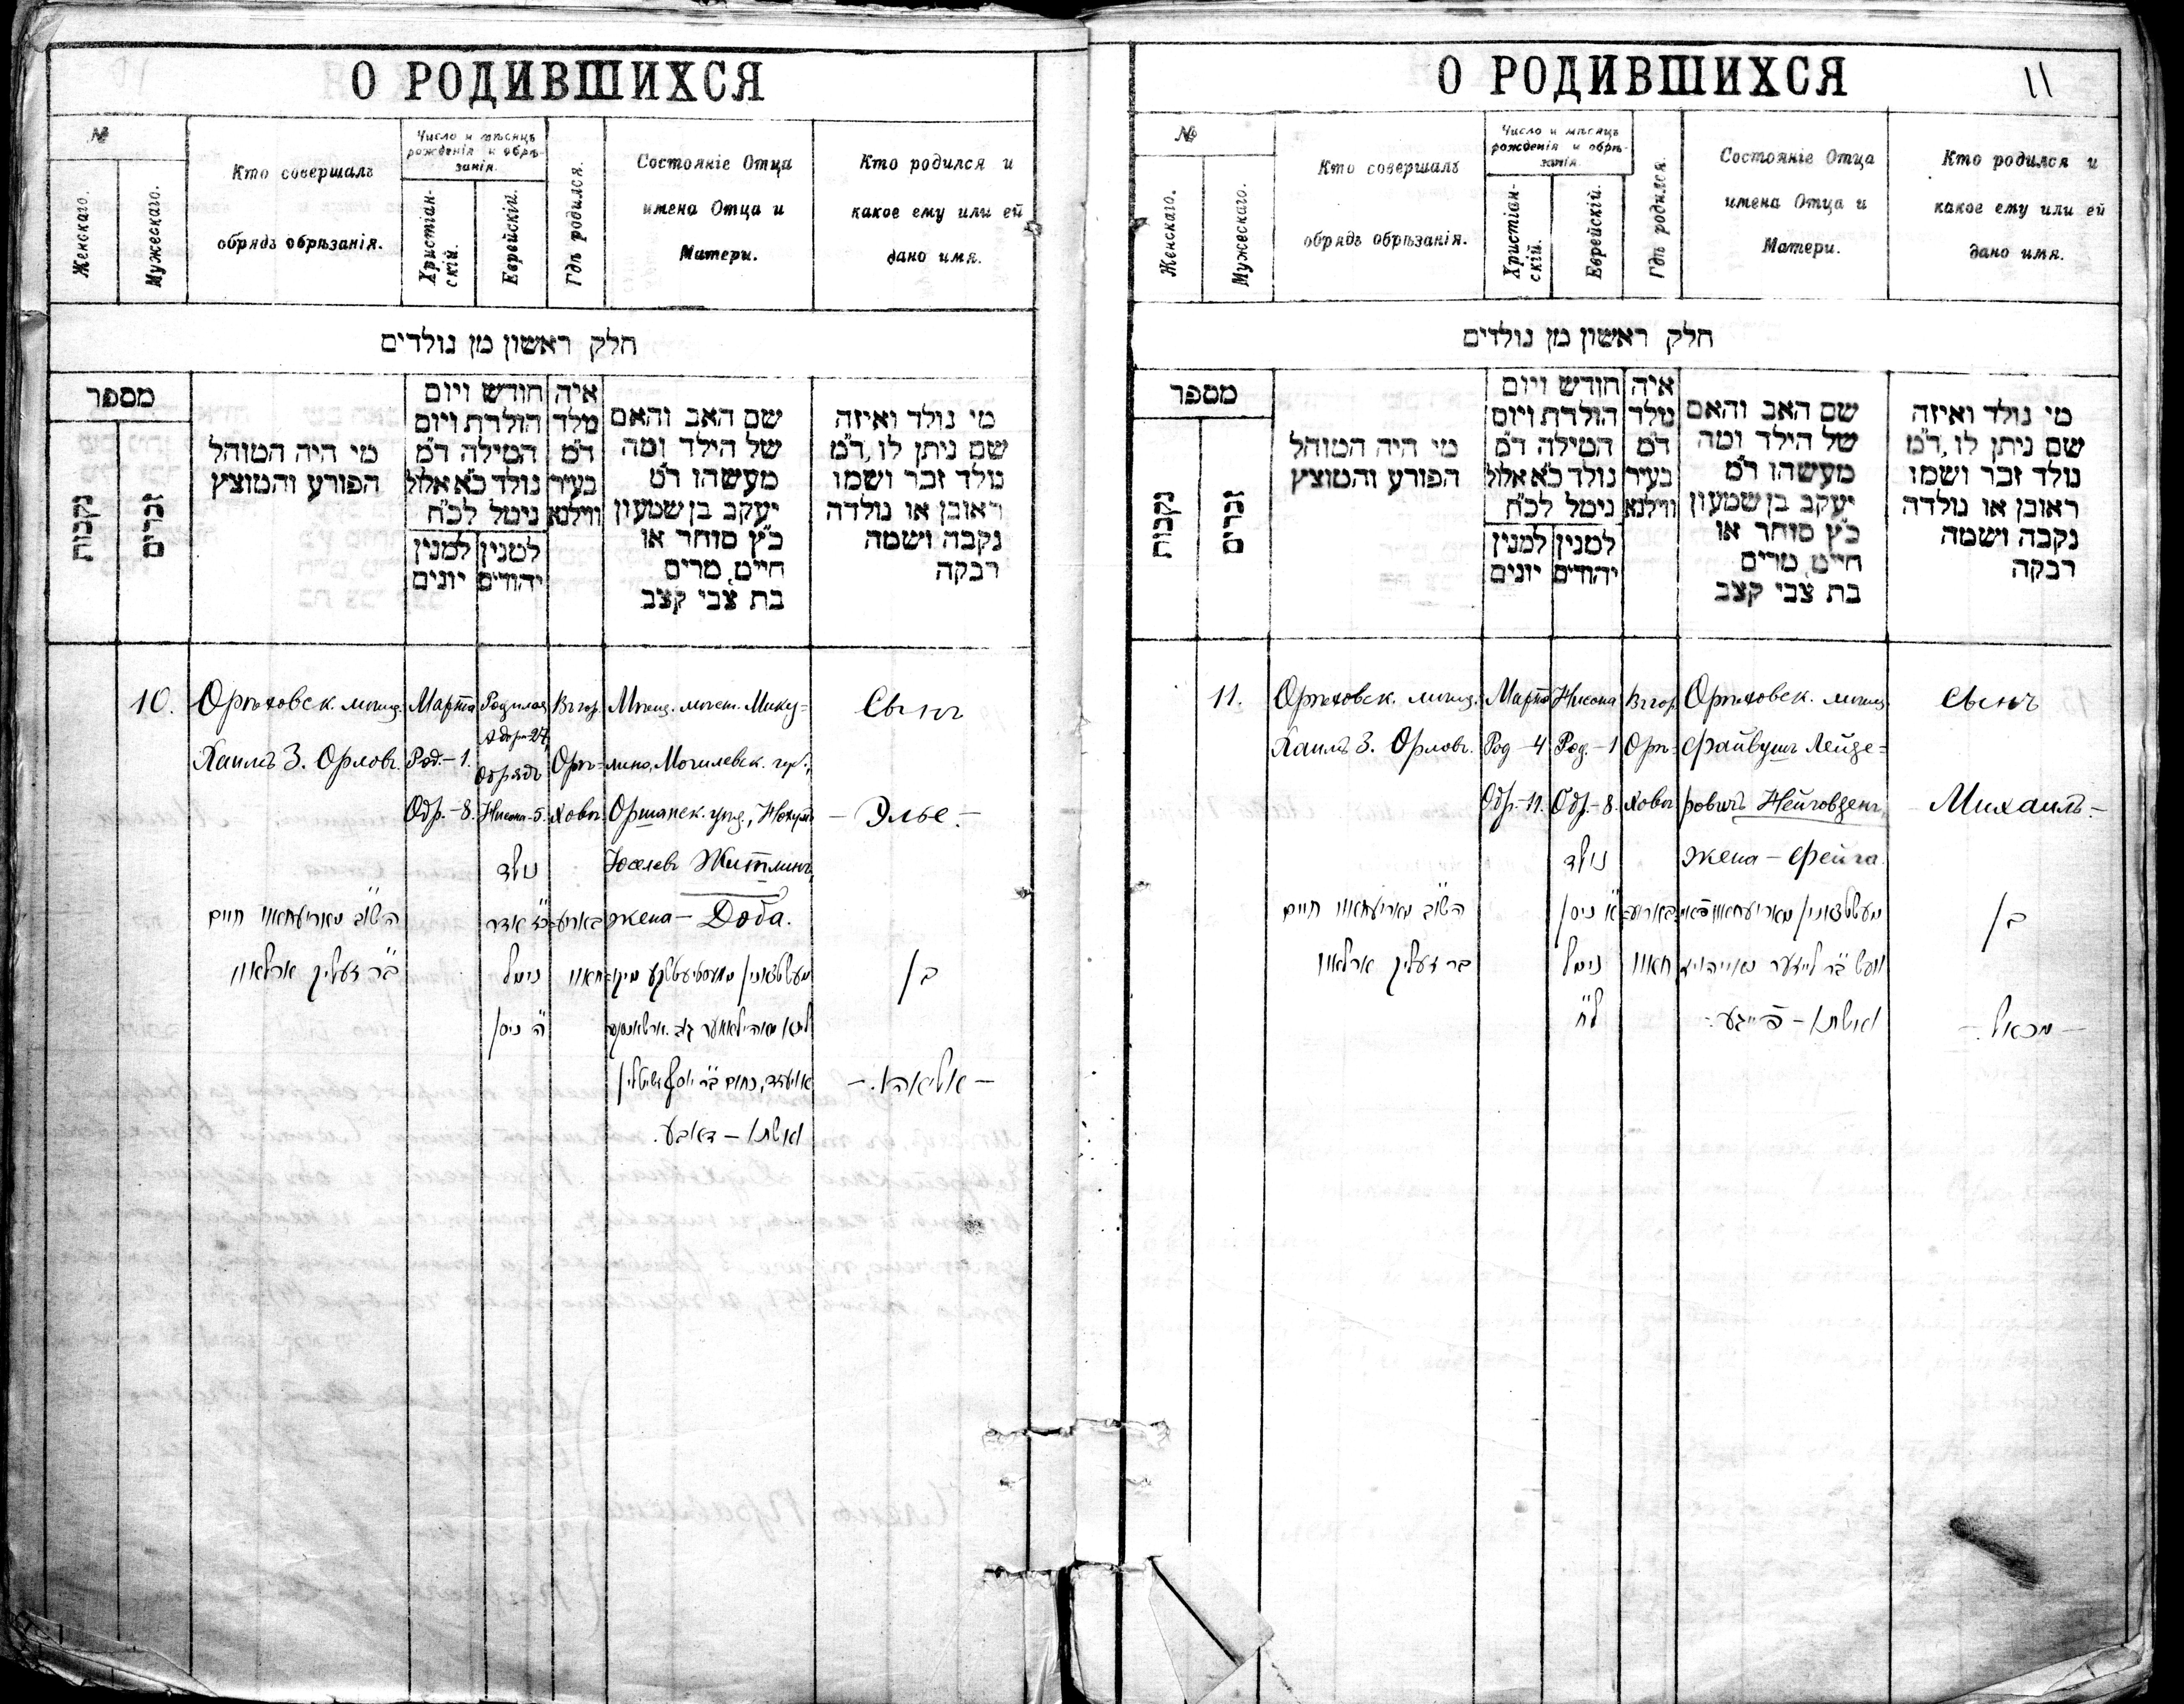 О РОДИВШИХСЯ
№
Женскаго.
Мужескаго.
Кто совершалъ
обрядъ обрѣзанія.
Число и мѣсяцъ
рожденія и обрѣ-
занія.
Христіан-
скій.
Еврейскій.
Гдѣ родился.
Состояніе Отца
имена Отца и
Матери.
Кто родился и
какое ему или ей
дано имя.
חלק ראשון מן נולדים
מספר
נקבות
זכרים
מי היה המוהל
הפורע והמוצץ
חודש ויום
הולדת ויום
המילה ד״מ
נולד כ״א אלול
נימל לכ״ח
למנין
יהודים
למנין
יונים
איה
מלד
ד״מ
בעיר
ווילנא
שם האב והאם
של הילד ומה
מעשהו ד״מ
יעקב בן שמעון
כ״ץ סוחר או
חייט, מרים
בת צבי קצב
מי נולד ואיזה
שם ניתן לו, ד״מ
נולד זכר ושמו
ראובן או נולדה
נקבה ושמה
רבקה
10.
Орѣховск. мѣщ.
Хаимъ З. Орловъ.
Марта
Род.-1.
Обр.-8.
Родился
Адара-27,
Обрядъ
Нисана-5.
Въ гор.
Орѣ-
ховѣ.
Мѣщ. мѣст. Мику=
лино, Могилевск. губ.,
Оршанск. уѣзд., Нохумъ
Іоселевъ Житлинъ,
жена - Доба.
Сынъ
- Элье. -
חיים
נולד
אדר
נימל
ה׳ ניסן
אשתו - דאבע.
בן
- אליאהו. -
О РОДИВШИХСЯ
11
№
Женскаго.
Мужескаго.
Кто совершалъ
обрядъ обрѣзанія.
Число и мѣсяцъ
рожденія и обрѣ-
занія.
Христіан-
скій.
Еврейскій.
Гдѣ родился.
Состояніе Отца
имена Отца и
Матери.
Кто родился и
какое ему или ей
дано имя.
חלק ראשון מן נולדים
מספר
נקבות
זכרים
מי היה המוהל
הפורע והמוצץ
חודש ויום
הולדת ויום
המילה ד״מ
נולד כ״א אלול
נימל לכ״ח
למנין
יהודים
למנין
יונים
איה
מלד
ד״מ
בעיר
ווילנא
שם האב והאם
של הילד ומה
מעשהו ד״מ
יעקב בן שמעון
כ״ץ סוחר או
חייט, מרים
בת צבי קצב
מי נולד ואיזה
שם ניתן לו, ד״מ
נולד זכר ושמו
ראובן או נולדה
נקבה ושמה
רבקה
11.
Орѣховск. мѣщ.
Хаимъ З. Орловъ.
Марта
Род-4
Обр.-11.
Нисана
Род.-1
Обр.-8.
Въ гор.
Орѣ-
ховѣ
Орѣховск. мѣщ.
Файвушъ Лейзе=
ровичъ
жена - Фейга.
Сынъ
- Михаилъ. -
חיים
נולד
א׳ ניסן
נימל
לח׳
אשתו - פייגע.
בן
- מכאל. -